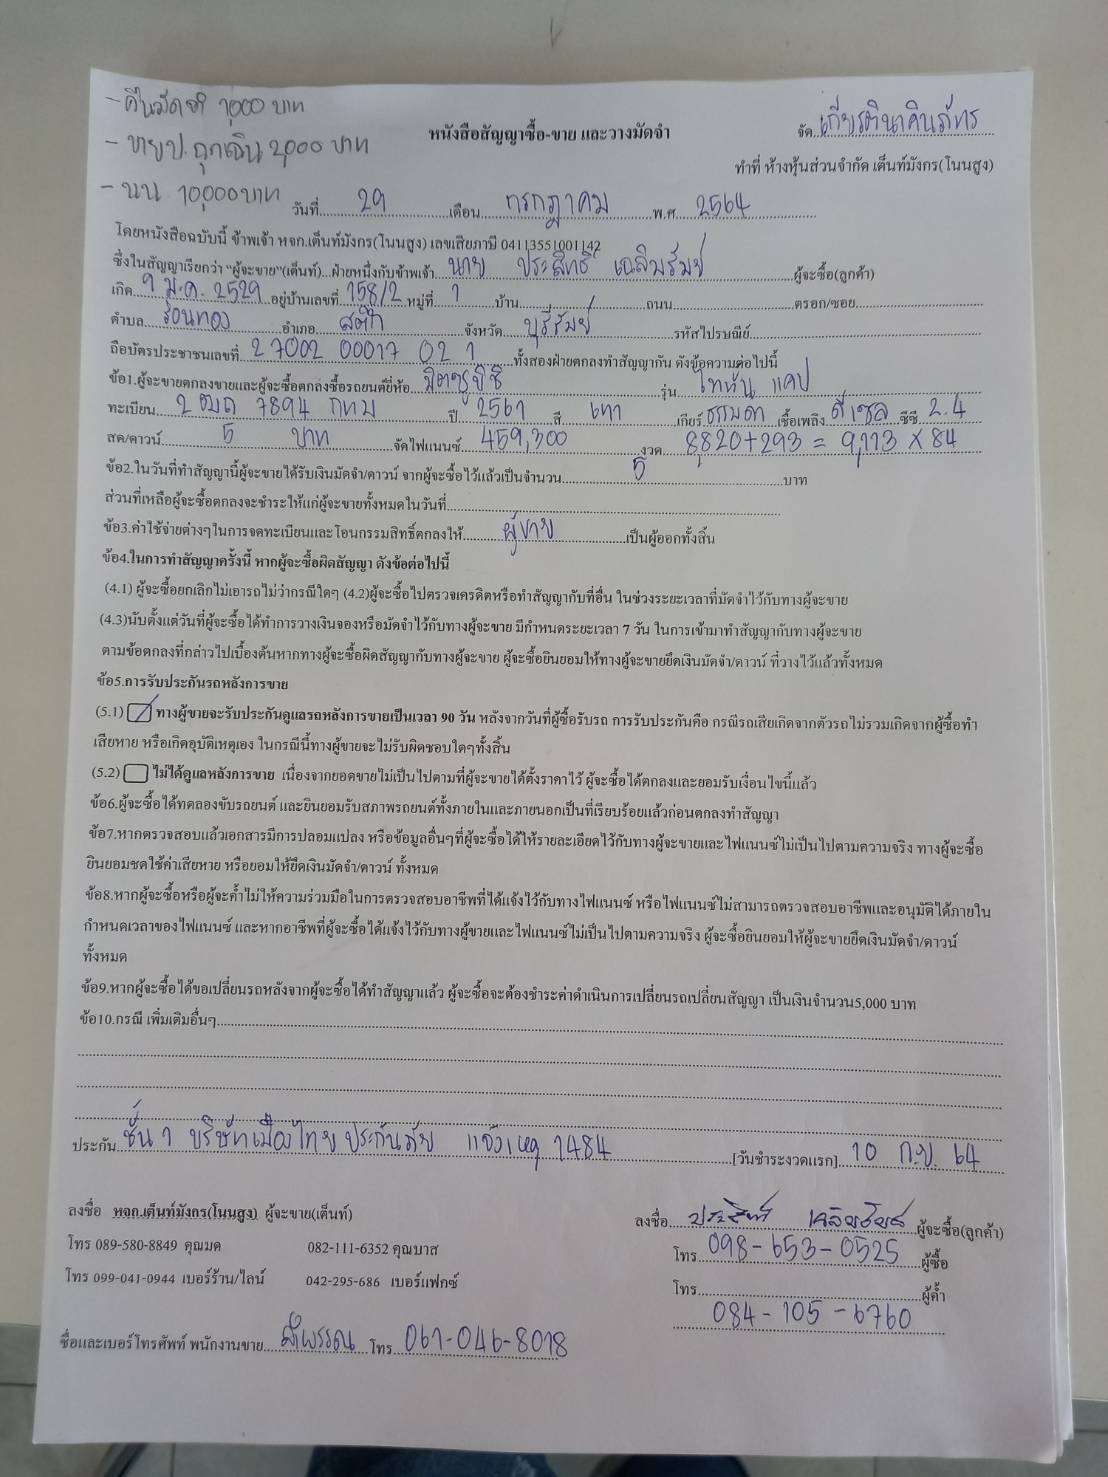 - คืนมัดจำ 1000 บาท
หนังสือสัญญาซื้อ-ขาย และวางมัดจำ
จัด เกียรตินาคินภัทร
- ขายป. ฉุกเฉิน 2,000 บาท
ทำที่ ห้างหุ้นส่วนจำกัด เต็นท์มังกร(โนนสูง)
- นน 10,000 บาท
วันที่ 29 เดือน กรกฎาคม พ.ศ. 2564
โดยหนังสือฉบับนี้ ข้าพเจ้า หจก.เต็นท์มังกร(โนนสูง) เลขเสียภาษี 04113551001142
ซึ่งในสัญญาเรียกว่า "ผู้จะขาย"(เต็นท์)...ฝ่ายหนึ่งกับข้าพเจ้า นาย ประสิทธิ์ เฉลิมรัมย์ ผู้จะซื้อ(ลูกค้า)
เกิด 9 ม.ค. 2529 อยู่บ้านเลขที่ 158/2 หมู่ที่ 1 บ้าน ถนน ตรอก/ซอย
ตำบล ร่อนทอง อำเภอ สตึก จังหวัด บุรีรัมย์ รหัสไปรษณีย์
ถือบัตรประชาชนเลขที่ 27002 00017 02 1 ทั้งสองฝ่ายตกลงทำสัญญากัน ดังข้อความต่อไปนี้
ข้อ1.ผู้จะขายตกลงขายและผู้จะซื้อตกลงซื้อรถยนต์ยี่ห้อ มิตซูบิชิ รุ่น ไททัน แคป
ทะเบียน 2ฒถ 7894 กทม ปี 2561 สี เทา เกียร์ ธรรมดา เชื้อเพลิง ดีเซล ซีซี 2.4
สด/ดาวน์ 5 บาท จัดไฟแนนซ์ 459,300 งวด 8,820+293 = 9,113 x 84
ข้อ2.ในวันที่ทำสัญญานี้ผู้จะขายได้รับเงินมัดจำ/ดาวน์ จากผู้จะซื้อไว้แล้วเป็นจำนวน 5 บาท
ส่วนที่เหลือผู้จะซื้อตกลงจะชำระให้แก่ผู้จะขายทั้งหมดในวันที่
ข้อ3.ค่าใช้จ่ายต่างๆในการจดทะเบียนและโอนกรรมสิทธิ์ตกลงให้ ผู้ขาย เป็นผู้ออกทั้งสิ้น
ข้อ4.ในการทำสัญญาครั้งนี้ หากผู้จะซื้อผิดสัญญา ดังข้อต่อไปนี้
(4.1) ผู้จะซื้อยกเลิกไม่เอารถไม่ว่ากรณีใดๆ (4.2)ผู้จะซื้อไปตรวจเครดิตหรือทำสัญญากับที่อื่น ในช่วงระยะเวลาที่มัดจำไว้กับทางผู้จะขาย
(4.3)นับตั้งแต่วันที่ผู้จะซื้อได้ทำการวางเงินจองหรือมัดจำไว้กับทางผู้จะขาย มีกำหนดระยะเวลา 7 วัน ในการเข้ามาทำสัญญากับทางผู้จะขาย
ตามข้อตกลงที่กล่าวไปเบื้องต้นหากทางผู้จะซื้อผิดสัญญากับทางผู้จะขาย ผู้จะซื้อยินยอมให้ทางผู้จะขายยึดเงินมัดจำ/ดาวน์ ที่วางไว้แล้วทั้งหมด
ข้อ5.การรับประกันรถหลังการขาย
(5.1) ทางผู้ขายจะรับประกันดูแลรถหลังการขายเป็นเวลา 90 วัน หลังจากวันที่ผู้ซื้อรับรถ การรับประกันคือ กรณีรถเสียเกิดจากตัวรถไม่รวมเกิดจากผู้ซื้อทำ
เสียหาย หรือเกิดอุบัติเหตุเอง ในกรณีนี้ทางผู้ขายจะไม่รับผิดชอบใดๆทั้งสิ้น
(5.2) ไม่ได้ดูแลหลังการขาย เนื่องจากยอดขายไม่เป็นไปตามที่ผู้จะขายได้ตั้งราคาไว้ ผู้จะซื้อได้ตกลงและยอมรับเงื่อนไขนี้แล้ว
ข้อ6.ผู้จะซื้อได้ทดลองขับรถยนต์ และยินยอมรับสภาพรถยนต์ทั้งภายในและภายนอกเป็นที่เรียบร้อยแล้วก่อนตกลงทำสัญญา
ข้อ7.หากตรวจสอบแล้วเอกสารมีการปลอมแปลง หรือข้อมูลอื่นๆที่ผู้จะซื้อได้ให้รายละเอียดไว้กับทางผู้จะขายและไฟแนนซ์ไม่เป็นไปตามความจริง ทางผู้จะซื้อ
ยินยอมชดใช้ค่าเสียหาย หรือยอมให้ยึดเงินมัดจำ/ดาวน์ ทั้งหมด
ข้อ8.หากผู้จะซื้อหรือผู้จะค้ำไม่ให้ความร่วมมือในการตรวจสอบอาชีพที่ได้แจ้งไว้กับทางไฟแนนซ์ หรือไฟแนนซ์ไม่สามารถตรวจสอบอาชีพและอนุมัติได้ภายใน
กำหนดเวลาของไฟแนนซ์ และหากอาชีพที่ผู้จะซื้อได้แจ้งไว้กับทางผู้ขายและไฟแนนซ์ไม่เป็นไปตามความจริง ผู้จะซื้อยินยอมให้ผู้จะขายยึดเงินมัดจำ/ดาวน์
ทั้งหมด
ข้อ9.หากผู้จะซื้อได้ขอเปลี่ยนรถหลังจากผู้จะซื้อได้ทำสัญญาแล้ว ผู้จะซื้อจะต้องชำระค่าดำเนินการเปลี่ยนรถเปลี่ยนสัญญา เป็นเงินจำนวน5,000 บาท
ข้อ10.กรณี เพิ่มเติมอื่นๆ
ประกัน ชั้น 1 บริษัทเมืองไทยประกันภัย แจ้งเหตุ 1484 [วันชำระงวดแรก] 10 ก.ย. 64
ลงชื่อ หจก.เต็นท์มังกร(โนนสูง) ผู้จะขาย(เต็นท์)
ลงชื่อ ประสิทธิ์ เฉลิมรัมย์ ผู้จะซื้อ(ลูกค้า)
โทร 089-580-8849 คุณมด 082-111-6352 คุณบาส
โทร 098-653-0525 ผู้ซื้อ
โทร 099-041-0944 เบอร์ร้าน/ไลน์ 042-295-686 เบอร์แฟกซ์
โทร 084-105-6760 ผู้ค้ำ
ชื่อและเบอร์โทรศัพท์ พนักงานขาย ลำพรรณ โทร 061-046-8018